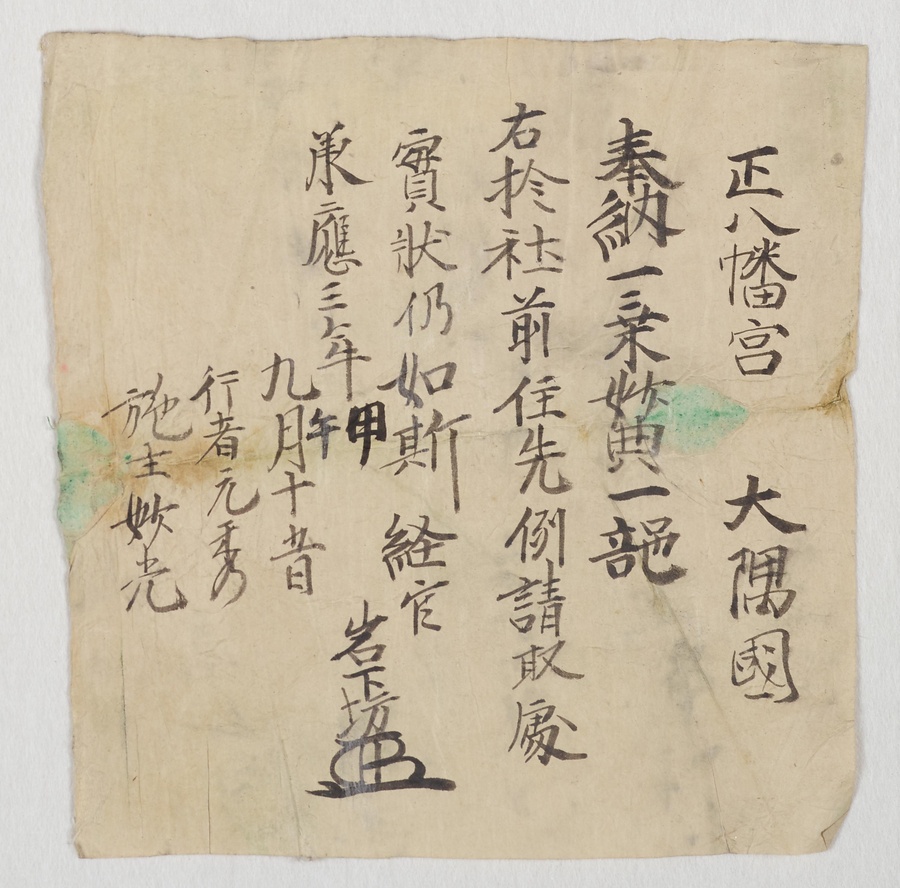 正八幡宮 大隅國
奉納一三乗妙典一部
右於社前任先例請取處
實状仍如斯 経官
岩下坊
承應三年 甲午
九月十
行者元秀
施主妙光